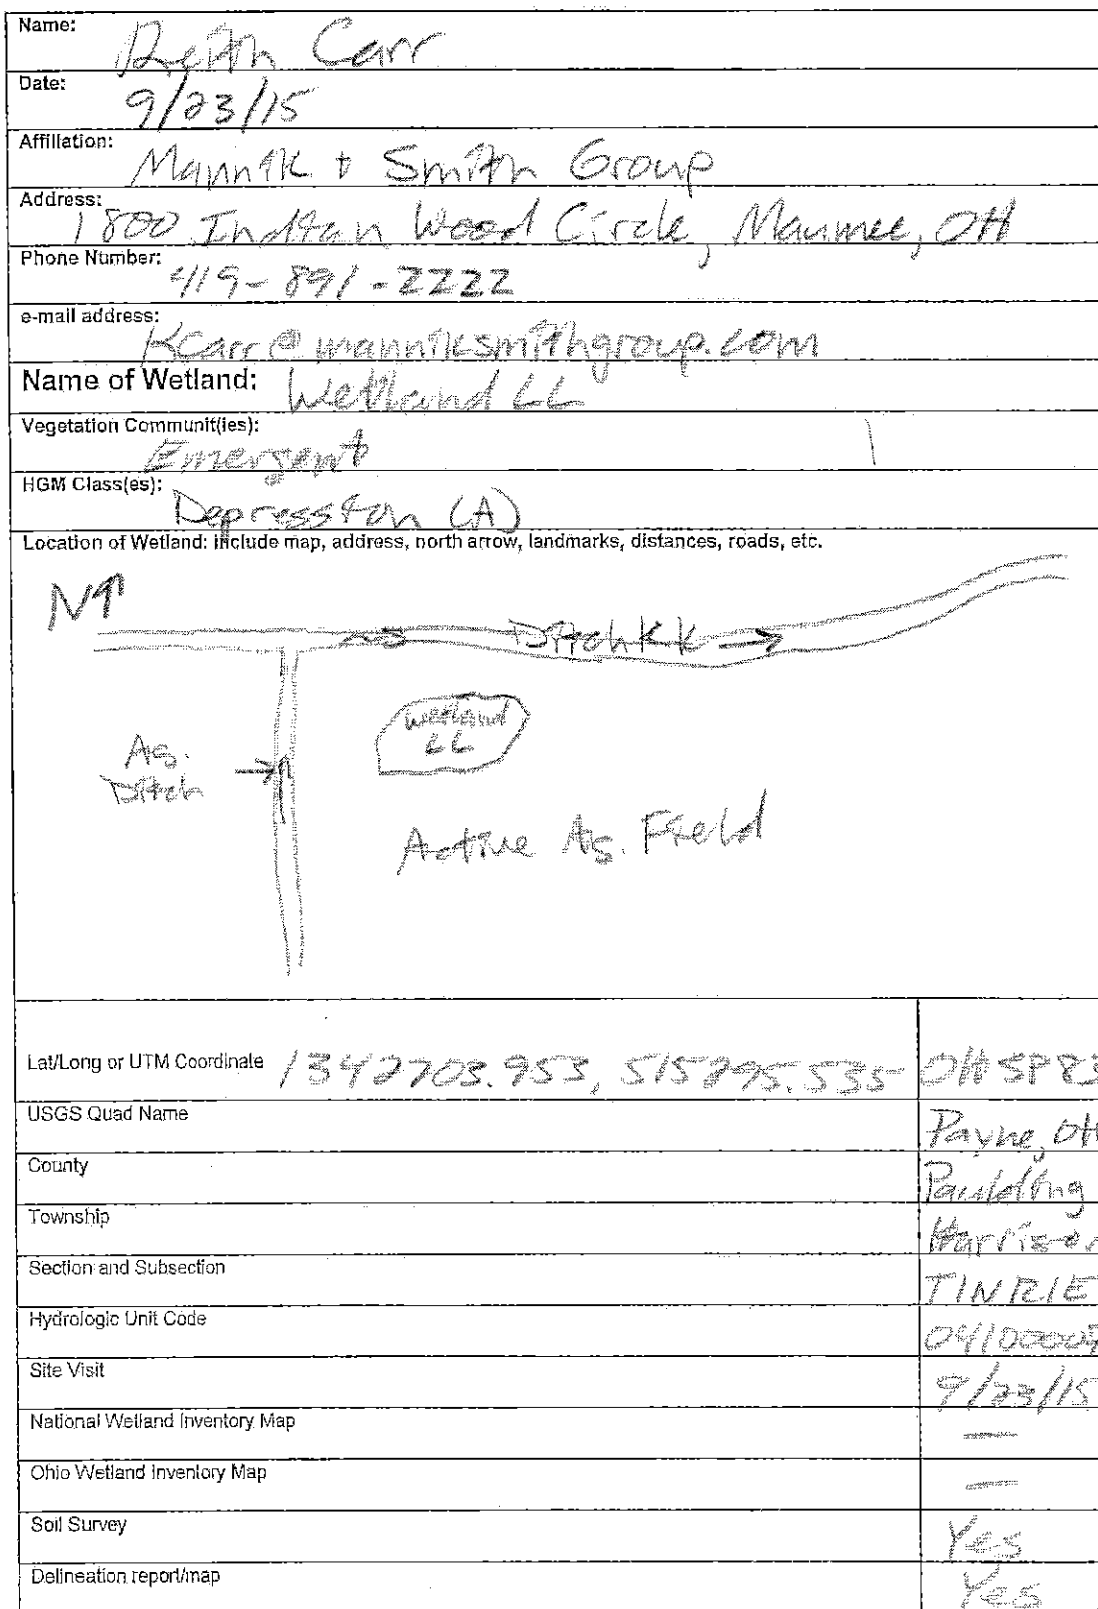 Name: Keith Carr
Date: 9/23/15
Affiliation: Mannik + Smith Group
Address: 1800 Indian Wood Circle, Maumee, OH
Phone Number: 419-891-2222
e-mail address: Kcarr@manniksmithgroup.com
Name of Wetland: Wetland LL
Vegetation Communit(ies): Emergent
HGM Class(es): Depression (A)
Location of Wetland: include map, address, north arrow, landmarks, distances, roads, etc.
N↑
Ditch KK →
Wetland
LL
Ag.
Ditch
Active Ag. Field
Lat/Long or UTM Coordinate 1342703.953, 515295.535 OHSP83
USGS Quad Name Payne, OH
County Paulding
Township Harrison
Section and Subsection T1NR1E
Hydrologic Unit Code
Site Visit 9/23/15
National Wetland Inventory Map —
Ohio Wetland Inventory Map —
Soil Survey Yes
Delineation report/map Yes